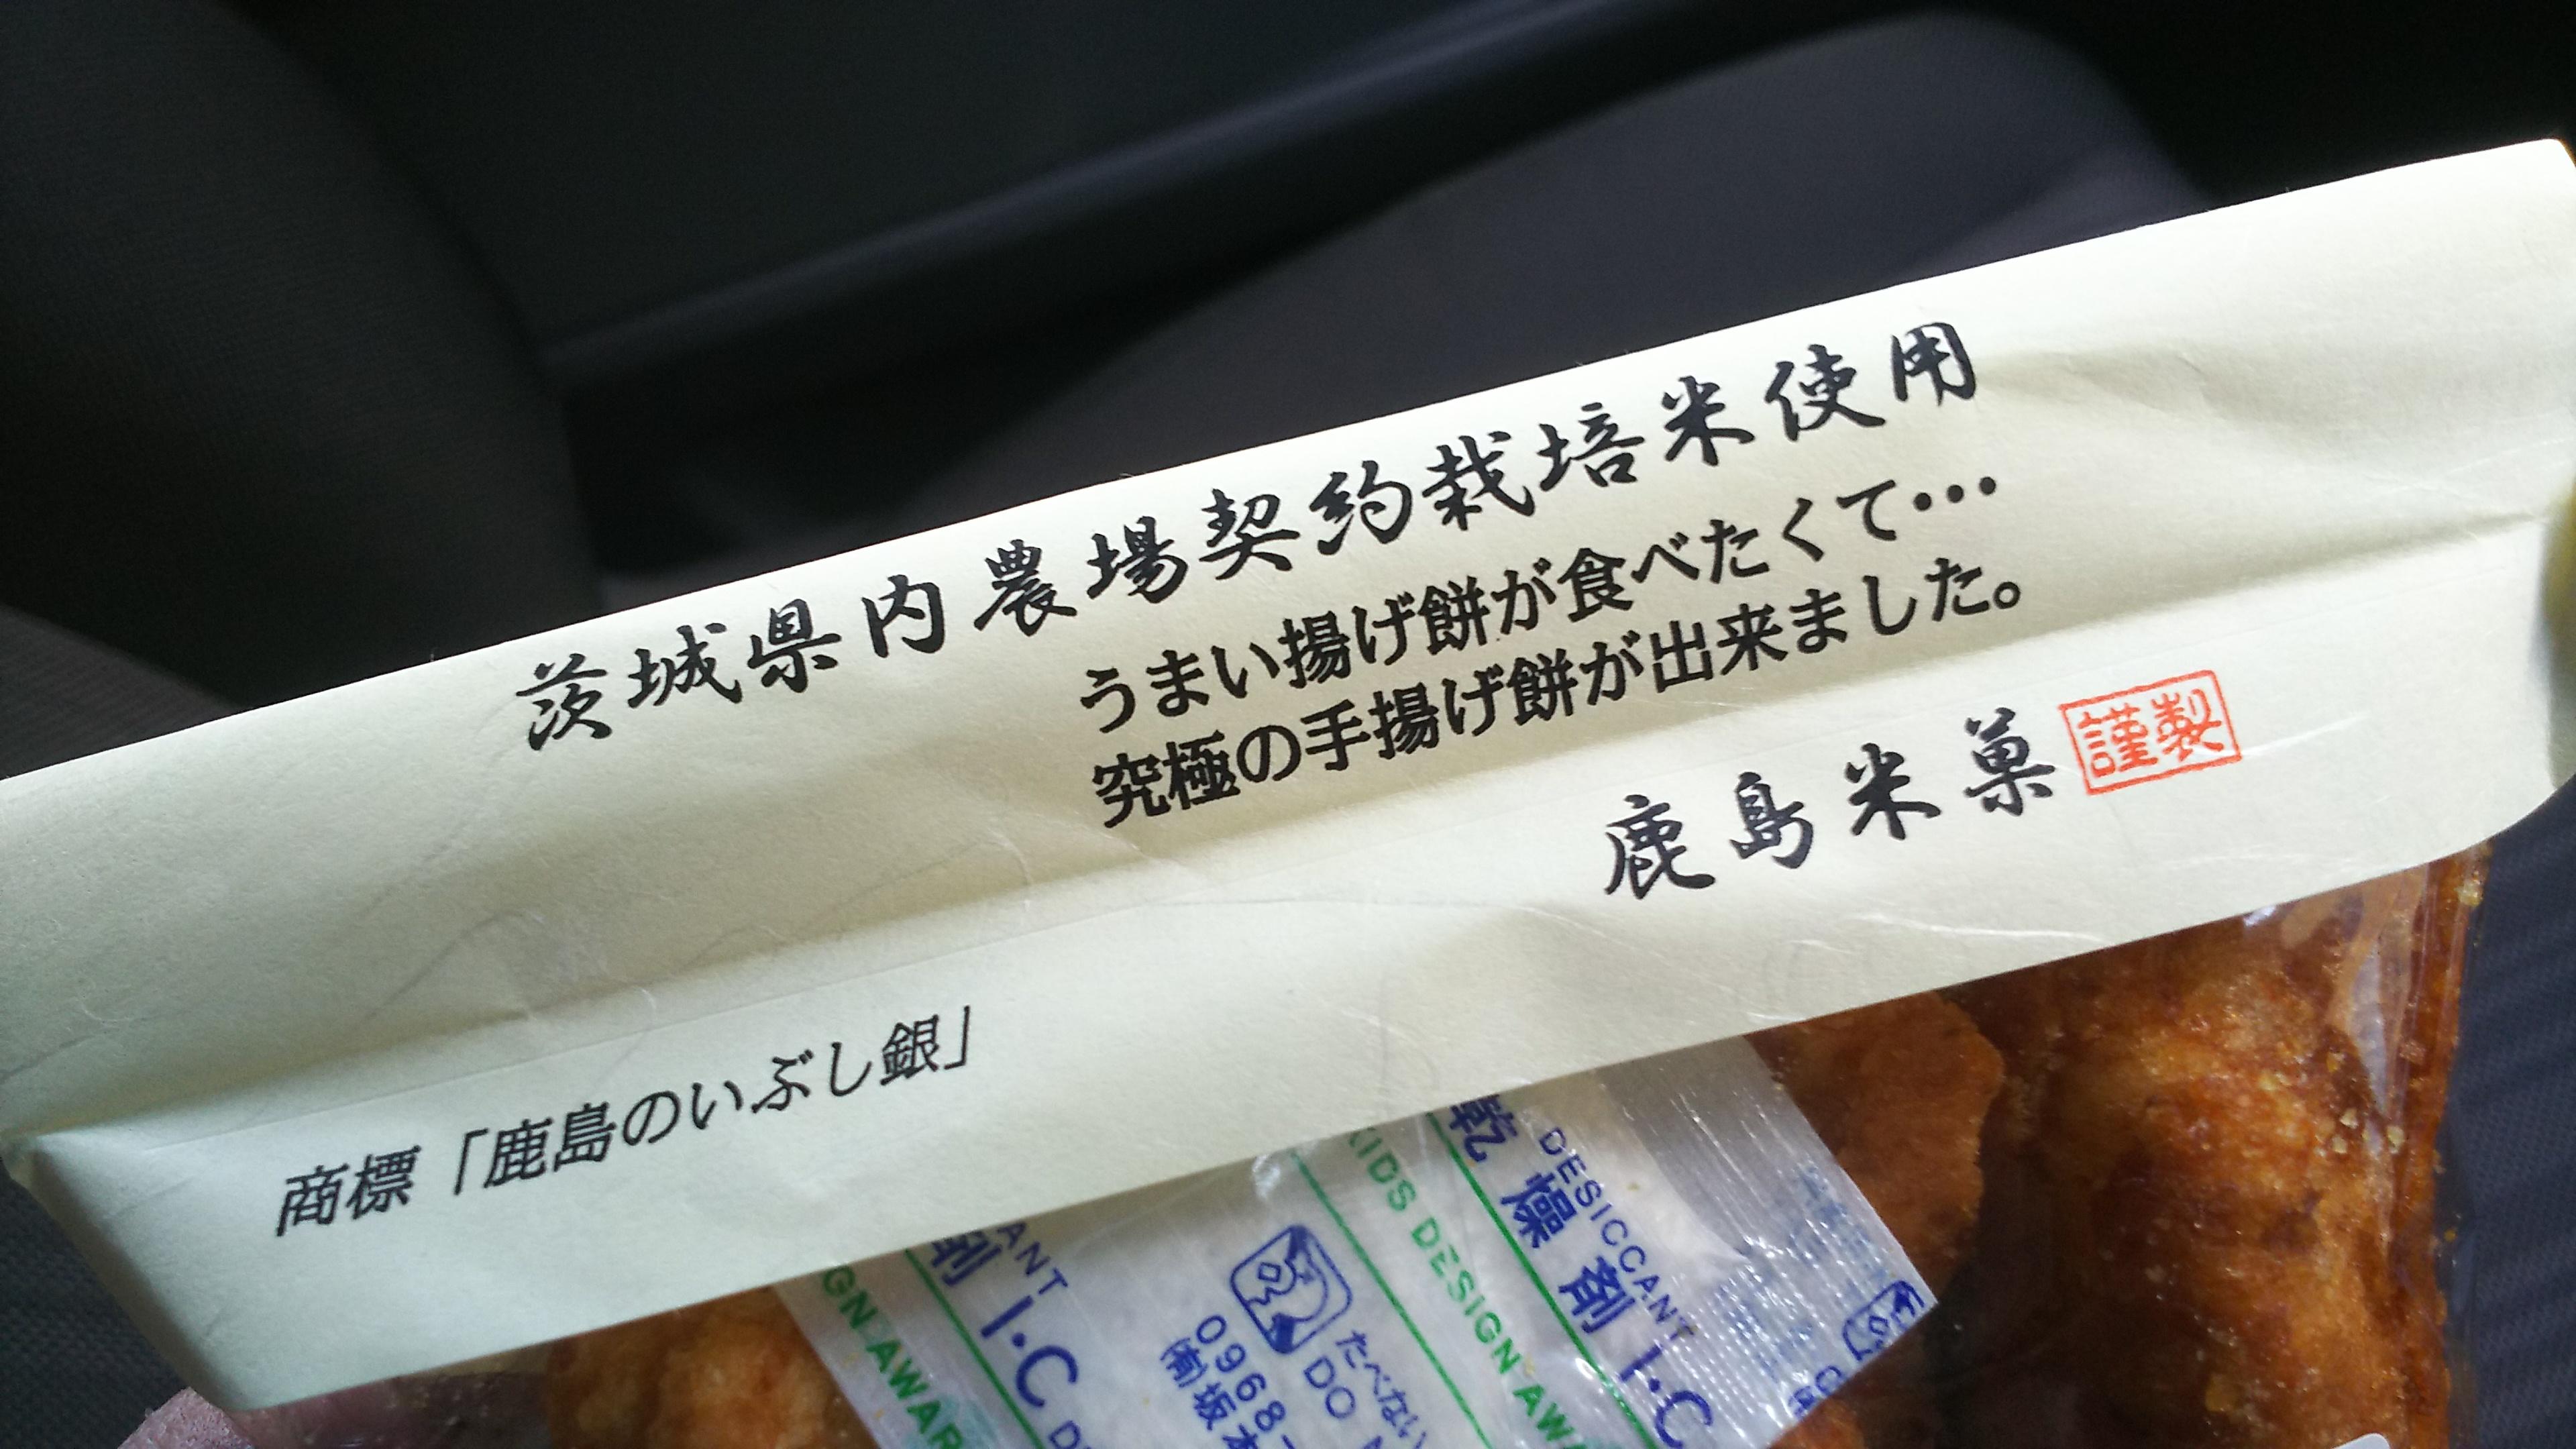 茨城県内農場契約栽培米使用
うまい揚げ餅が食べたくて・・・
究極の手揚げ餅が出来ました。
鹿島米菓 謹製
商標「鹿島のいぶし銀」
乾燥剤 I・C
DESICCANT
KIDS DESIGN AW
たべない
DO
0968-
(有)坂本
剤 I・C
ANT
GN AWAR